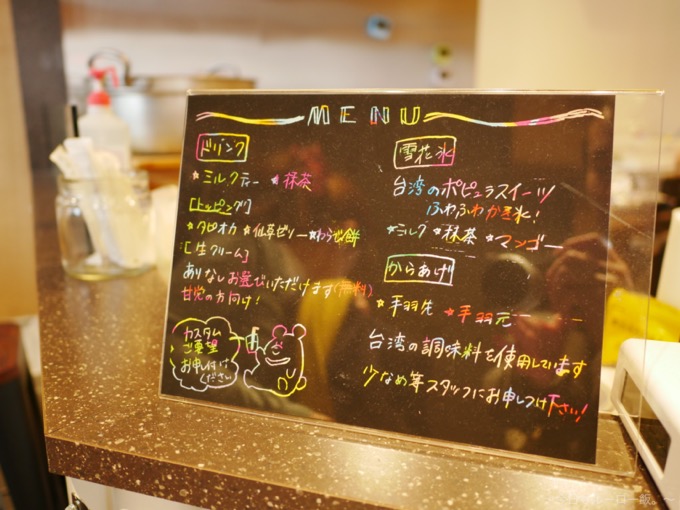 MENU
ドリンク
★ミルクティー ★抹茶
[トッピング]
★タピオカ ★仙草ゼリー ★わらび餅
[生クリーム]
ありなしお選びいただけます(無料)
甘党の方向け!
カスタム
ご要望
お申し付け
ください
雪花氷
台湾のポピュラスイーツ
ふわふわかき氷!
★ミルク ★抹茶 ★マンゴー
からあげ
★手羽先 ★手羽元
台湾の調味料を使用しています
少なめ等スタッフにお申しつけ下さい!